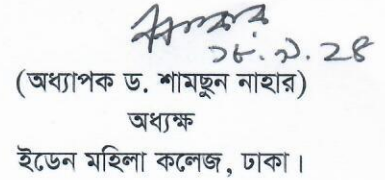 ১৮.৯.২৪
(অধ্যাপক ড. শামছুন নাহার)
অধ্যক্ষ
ইডেন মহিলা কলেজ, ঢাকা।